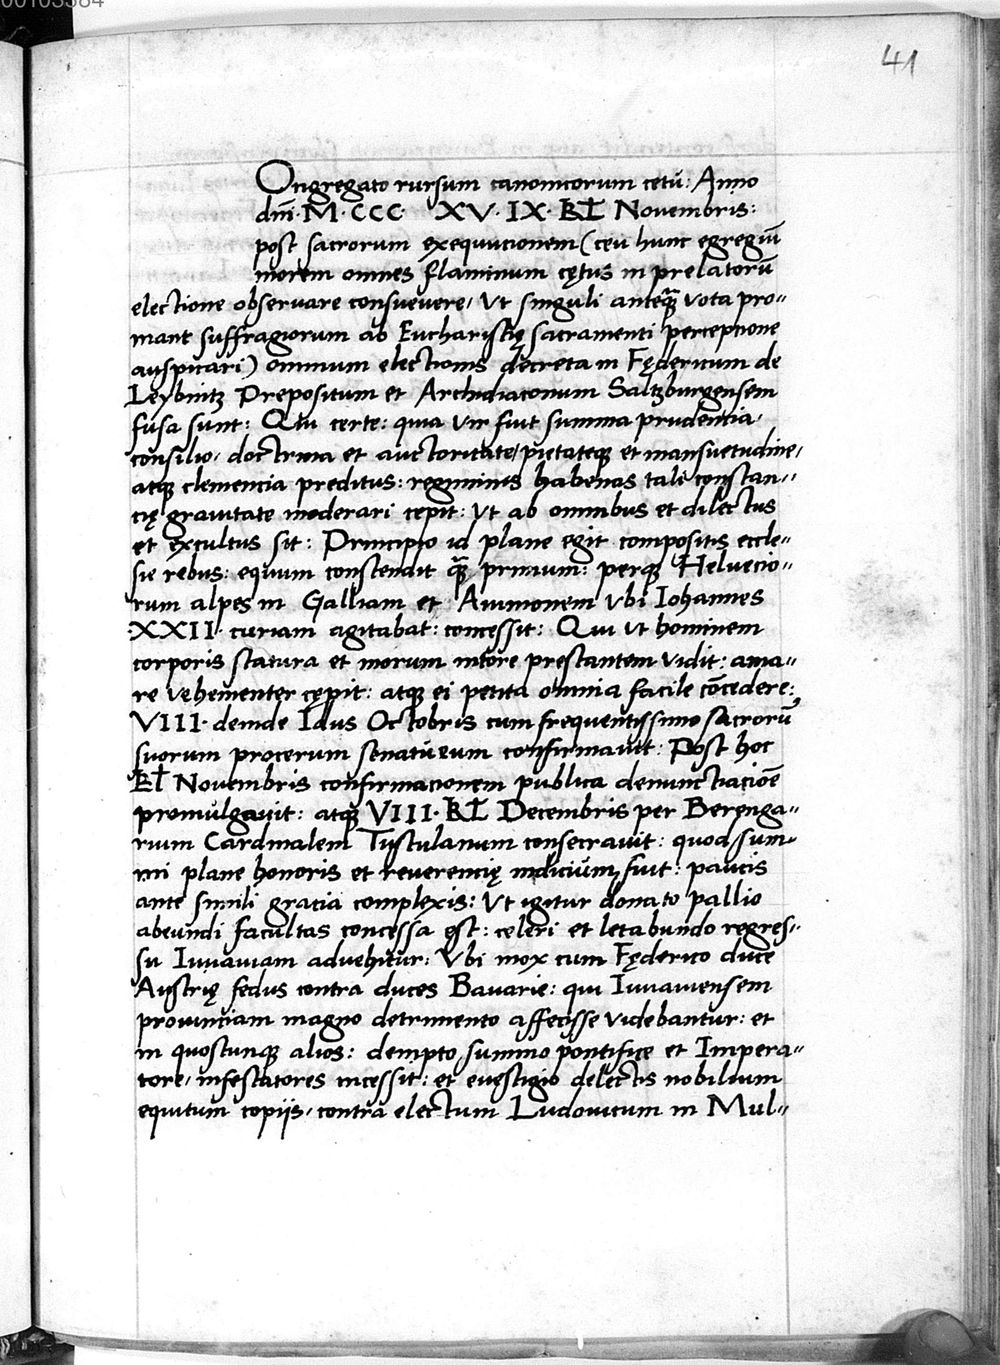 00103384
41
Ongregato rursum canonicorum cetū: Anno
dn̄i · M · CCC · XV · IX · KL Novembris:
post sacrorum exequucionem (ceu hunc egregiū
morem omnes flaminum cętus in prelatorū
electione observare consuevere, Ut singuli anteq̄ȝ vota pro„
mant suffragiorum ab Eucharistię sacramenti perceptione
auspicari) omnium electionis decreta in Fędericum de
Leybnitz Prepositum et Archidiaconum Saltzburgensem
fusa sunt: Qui certe: qua vir fuit summa prudentia,
consilio, doctrina et auctoritate, pietateqȝ et mansuetudine,
atqȝ clemencia preditus: regiminis habenas tali constan„
cię gravitate moderari cepit: Ut ab omnibus et dilectus
et excultus sit: Principio id plane egit compositis eccle„
sie rebus: equum conscendit q̄ȝ primum: perqȝ Helvecio„
rum alpes in Galliam et Avinionem Ubi Iohannes
·XXII· curiam agitabat: concessit: Qui ut hominem
corporis statura et morum nitore prestantem vidit: ama„
re vehementer cępit: atqȝ ei petita omnia facile cōcedere:
VIII· deinde Idus Octobris cum frequentissimo sacrorū
suorum procerum senatu eum confirmavit: Post hoc
KL Novembris confirmacionem publica denunctiacioē
promulgavit: atqȝ VIII· KL Decembris per Berenga„
rium Cardinalem Tusculanum consecravit: quod sum„
mi plane honoris et reverencię indicium fuit: paucis
ante simili gracia complexis: Ut igitur donato pallio
abeundi facultas concessa est: celeri et letabundo regres„
su Iuvaviam advehitur: Ubi mox cum Fęderico duce
Austrię fedus contra duces Bavarie: qui Iuvaviensem
provinciam magno detrimento affecisse videbantur: et
in quoscunqȝ alios: dempto summo pontifice et Impera„
tore, infestatores incessit: et evestigio delectis nobilium
equitum copijs, contra electum Ludovicum in Mul„